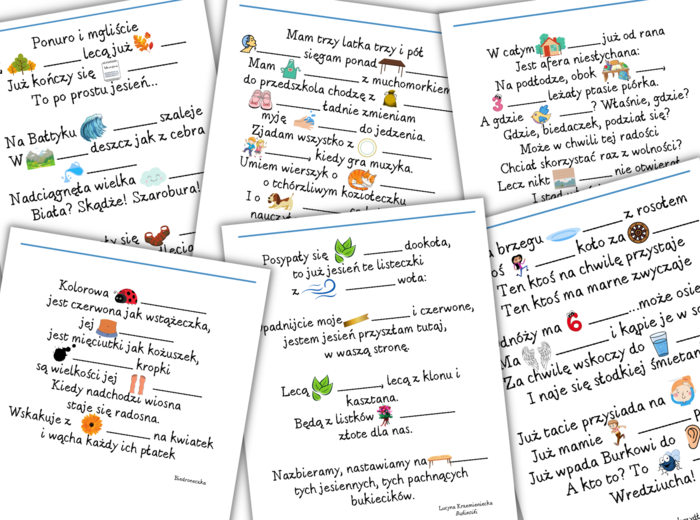 Ponuro i mgliście
lecą już
Już kończy się
To po prostu jesień...
Na Bałtyku szaleje
W deszcz jak z cebra
Nadciągnęła wielka
Biała? Skądże! Szarobura!
ty się
Mam trzy latka trzy i pół
sięgam ponad
Mam z muchomorkiem
do przedszkola chodzę z
ładnie zmieniam
myję do jedzenia.
Zjadam wszystko z
, kiedy gra muzyka.
Umiem wierszyk o
o tchórzliwym koziołeczku
I o
W całym już od rana
Jest afera niesłychana:
Na podłodze, obok
3 leżały ptasie piórka.
A gdzie ? Właśnie, gdzie?
Gdzie, biedaczek, podział się?
Może w chwili tej radości
Chciał skorzystać raz z wolności?
Lecz nikt nie otwierał
Kolorowa
jest czerwona jak wstążeczka,
jej
jest mięciutki jak kożuszek,
kropki
są wielkości jej
Kiedy nadchodzi wiosna
staje się radosna.
Wskakuje z na kwiatek
i wącha każdy ich płatek
Biedroneczka
Posypały się dookoła,
to już jesień te listeczki
z woła:
padnijcie moje i czerwone,
jestem jesień przyszłam tutaj,
w waszą stronę.
Lecą , lecą z klonu i
kasztana.
Będą z listków
złote dla nas.
Nazbieramy, nastawiamy na
tych jesiennych, tych pachnących
bukiecików.
Lucyna Krzemieniecka
Bukieciki
brzegu z rosołem
koło za
Ten ktoś na chwilę przystaje
Ten ktoś ma marne zwyczaje
6 ...może
Ma i kąpie je w
Za chwilę wskoczy do
I naje się słodkiej
Już tacie przysiada na
Już mamie
Już wpada Burkowi do
A kto to? To
Wredziucha!